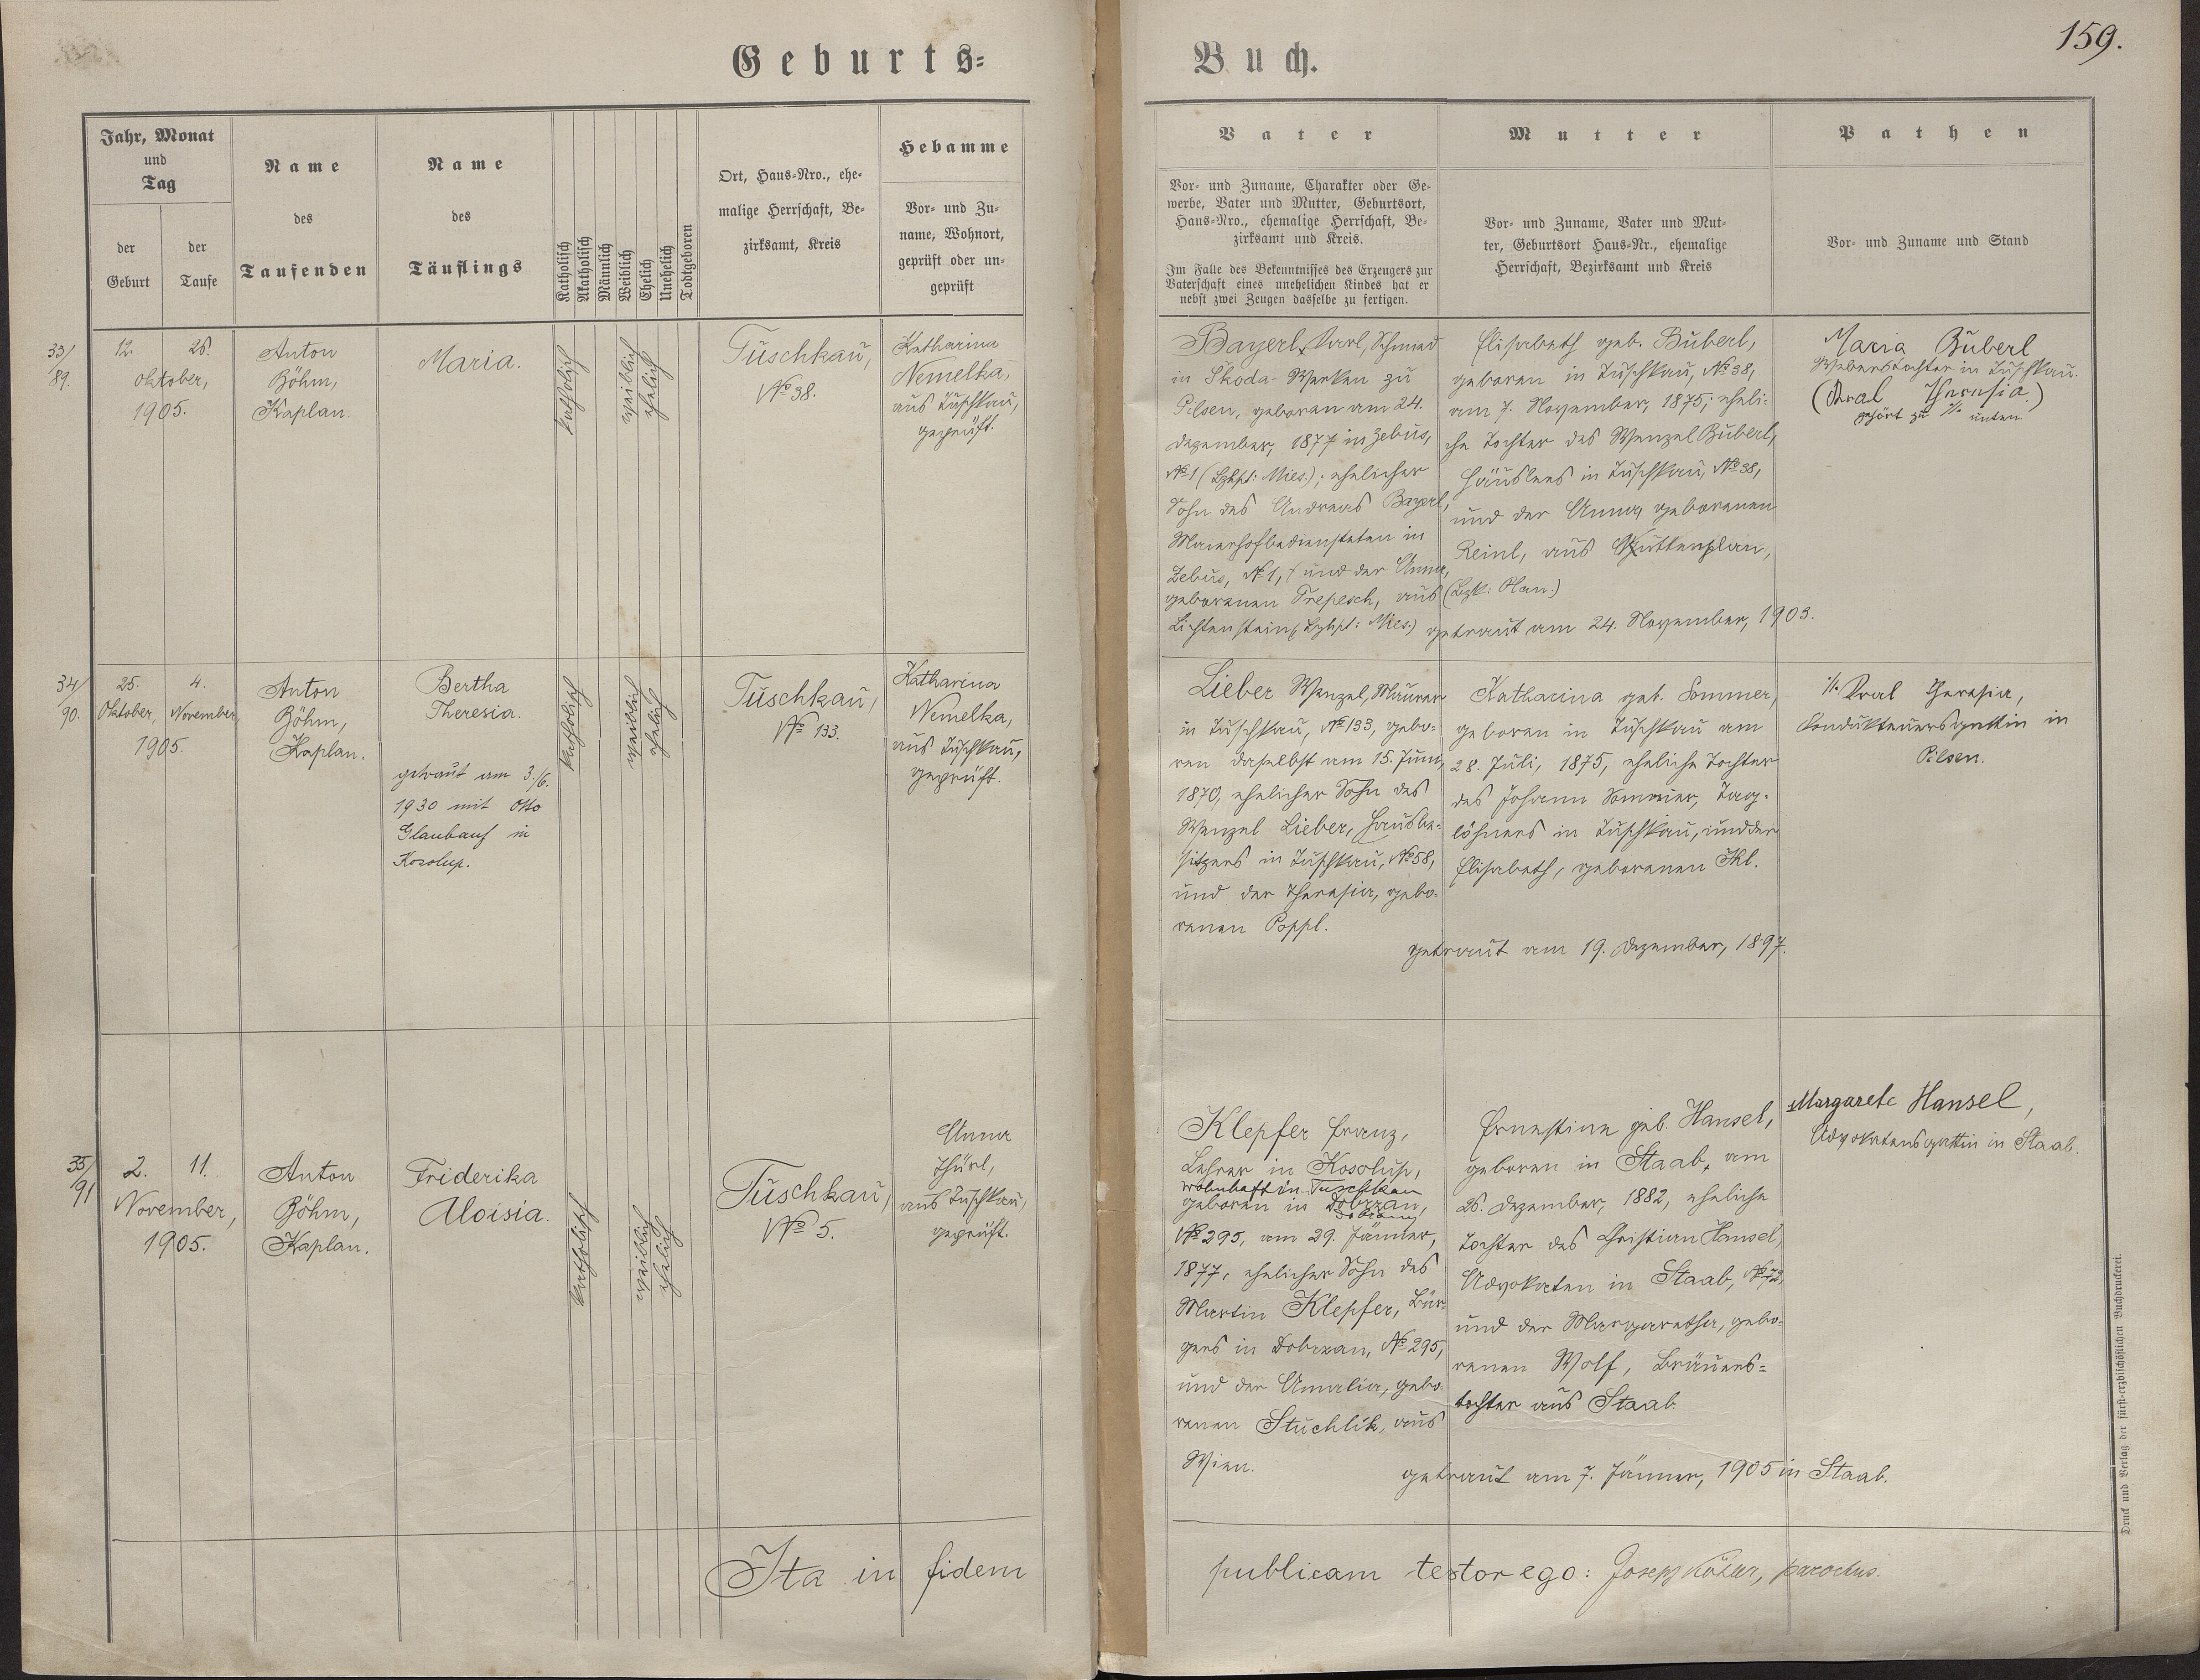 Geburts=
Buch.
159.
Jahr, Monat
und
Tag
der
Geburt
der
Taufe
Name
des
Taufenden
Name
des
Täuflings
Katholisch
Akatholisch
Männlich
Weiblich
Ehelich
Unehelich
Todtgeboren
Ort, Haus-Nro., ehe-
malige Herrschaft, Be-
zirksamt, Kreis
Hebamme
Vor- und Zu-
name, Wohnort,
geprüft oder un-
geprüft
Vater
Vor- und Zuname, Charakter oder Ge-
werbe, Vater und Mutter, Geburtsort,
Haus-Nro., ehemalige Herrschaft, Be-
zirksamt und Kreis.
Im Falle des Bekenntnisses des Erzeugers zur
Vaterschaft eines unehelichen Kindes hat er
nebst zwei Zeugen dasselbe zu fertigen.
Mutter
Vor- und Zuname, Vater und Mut-
ter, Geburtsort Haus-Nr., ehemalige
Herrschaft, Bezirksamt und Kreis
Pathen
Vor- und Zuname und Stand
33/
89.
12. 26.
Oktober,
1905.
Anton
Böhm,
Kaplan.
Maria.
katholisch
weiblich
ehelich
Tuschkau,
No 38.
Katharina
Nemelka,
aus Tuschkau,
geprüft.
Bayerl, Karl, Schmied
in Skoda-Werken zu
Pilsen, geboren am 24.
Dezember, 1877 in Zebus,
No 1 (Bzhpt: Mies.); ehelicher
Sohn des Andreas Bayerl,
Maierhofbediensteten in
Zebus, No 1, † und der Anna,
geborenen Trepesch, aus
Lichtenstein, (Bzhpt: Mies.)
Elisabeth geb. Buberl,
geboren in Tuschkau, No 38,
am 7. November, 1875; eheli-
che Tochter des Wenzel Buberl,
Häuslers in Tuschkau, No 38,
und der Anna, geborenen
Reinl, aus Kuttenplan,
(Bzk: Plan.)
getraut am 24. November, 1903.
Maria Buberl
Weberstochter in Tuschkau.
(Kral Theresia.)
gehört zu ·/. unten
34/
90.
25. 4.
Oktober, November,
1905.
Anton
Böhm,
Kaplan.
Bertha
Theresia.
getraut am 3./6.
1930 mit Otto
Glaubauf in
Kosolup.
katholisch
weiblich
ehelich
Tuschkau,
No 133.
Katharina
Nemelka,
aus Tuschkau,
geprüft.
Lieber Wenzel, Maurer
in Tuschkau, No 133, gebo-
ren daselbst am 15. Juni,
1870, ehelicher Sohn des
Wenzel Lieber, Hausbe-
sitzers in Tuschkau, No 58,
und der Theresia, gebo-
renen Poppl.
Katharina geb. Sommer,
geboren in Tuschkau am
28. Juli, 1875, eheliche Tochter
des Johann Sommer, Tag-
löhners in Tuschkau, und der
Elisabeth, geborenen Ikl.
getraut am 19. Dezember, 1897.
·/. Kral Theresia,
Kondukteursgattin in
Pilsen.
35/
91
2. 11.
November,
1905.
Anton
Böhm,
Kaplan.
Friderika
Aloisia.
katholisch
weiblich
ehelich
Tuschkau,
No 5.
Anna
Thürl,
aus Tuschkau,
geprüft.
Klepfer Franz,
Lehrer in Kosolup,
wohnhaft in Tuschkau
geboren in Dobrzan,
No 295, am 29. Jänner,
1877, ehelicher Sohn des
Martin Klepfer, Bür-
gers in Dobrzan, No 295,
und der Amalia, gebo-
renen Stuchlik, aus
Wien.
Ernestine geb. Hansel,
geboren in Staab, am
26. Dezember, 1882, eheliche
Tochter des Christian Hansel,
Advokaten in Staab, No 72,
und der Margaretha, gebo-
renen Wolf, Bräuers=
tochter aus Staab.
getraut am 7. Jänner, 1905 in Staab.
Margarete Hansel,
Advokatensgattin in Staab.
Ita in fidem
publicam testor ego: Josef , parochus.
Druck und Verlag der fürst-erzbischöflichen Buchdruckerei.